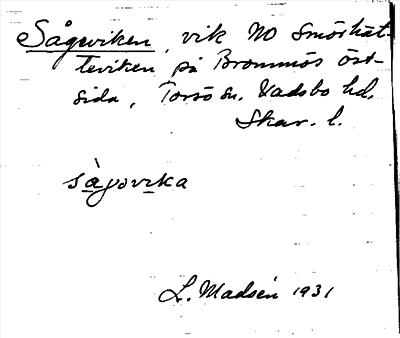 Sågeviken, vik NO Smörhät-
teviken på Brommös öst-
sida, Torsö sn. Vadsbo hd.
Skar. l.
sàgovika
L. Madsén 1931